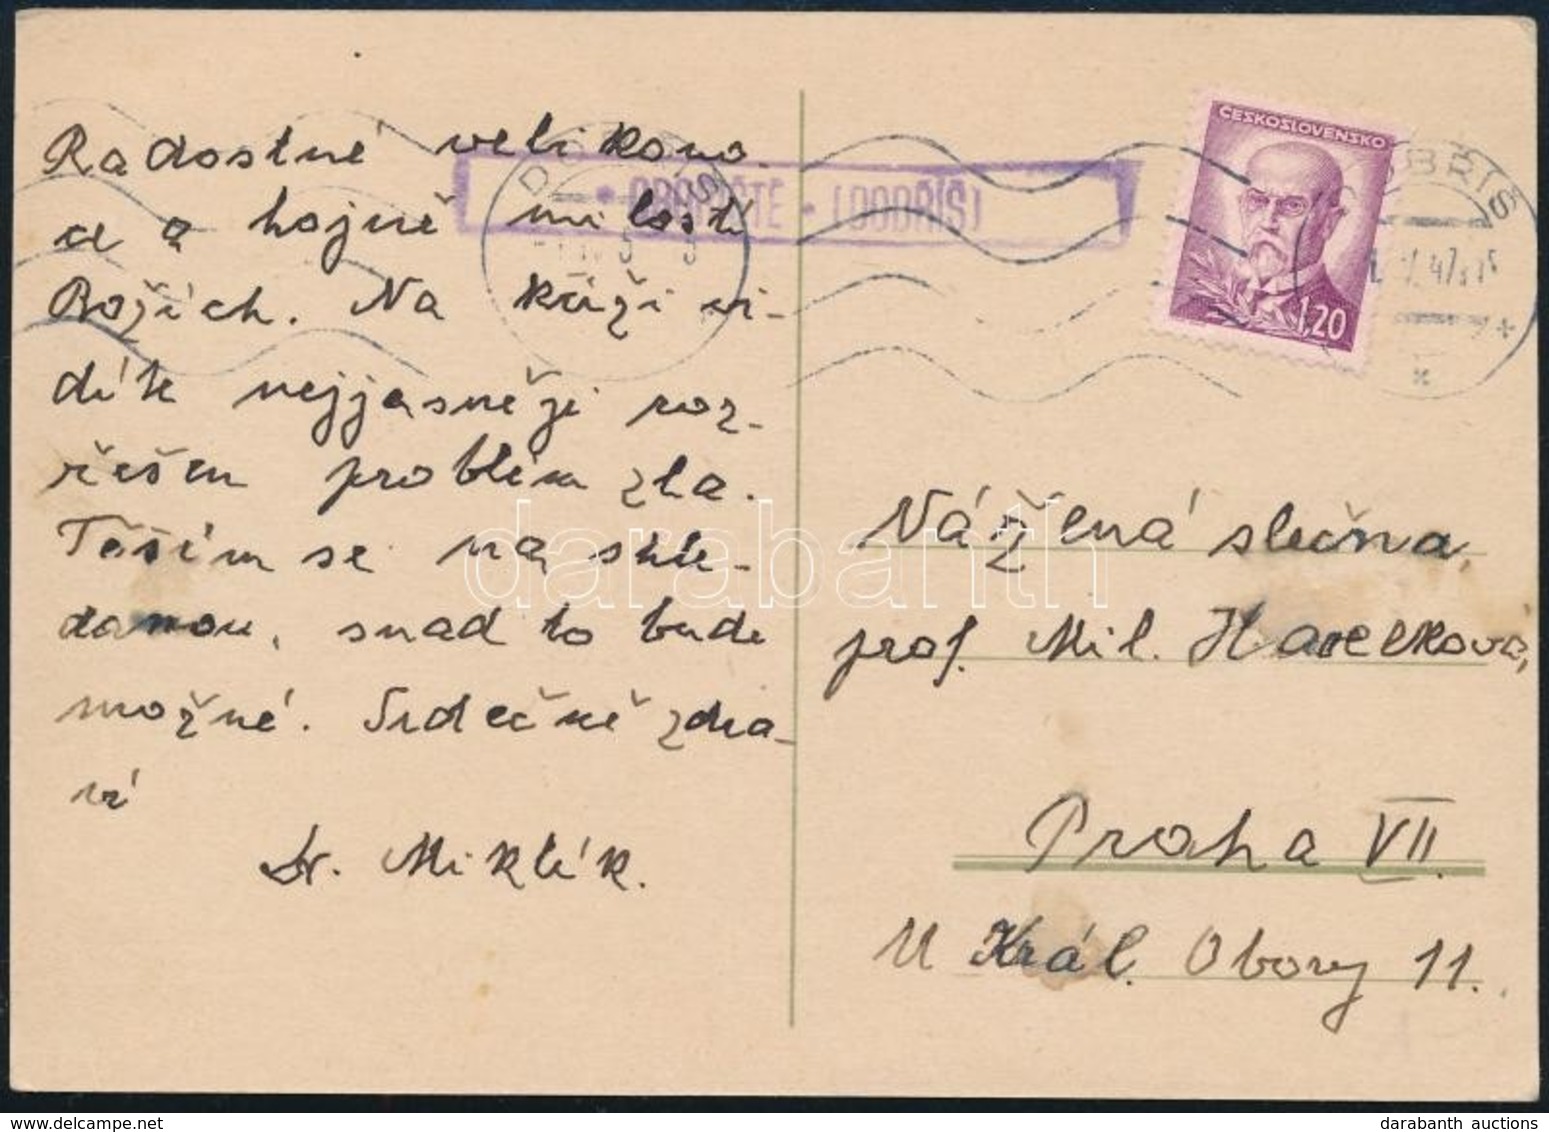 Radostné velikono-
ce a hojně milostí
Božích. Na kříži vi-
díte nejjasněji roz-
řešen problém zla.
Těším se na shle-
danou, snad to bude
možné. Srdečně zdra-
ví
Dr. Miklík.
DOBŘÍŠ
OBOŘIŠTĚ - (DOBŘÍŠ)
ČESKOSLOVENSKO
1.20
DOBŘÍŠ
47
Vážená slečna,
prof. Mil. Havelková,
Praha VII.
U Král. Obory 11.
darabanth
darabanth auctions